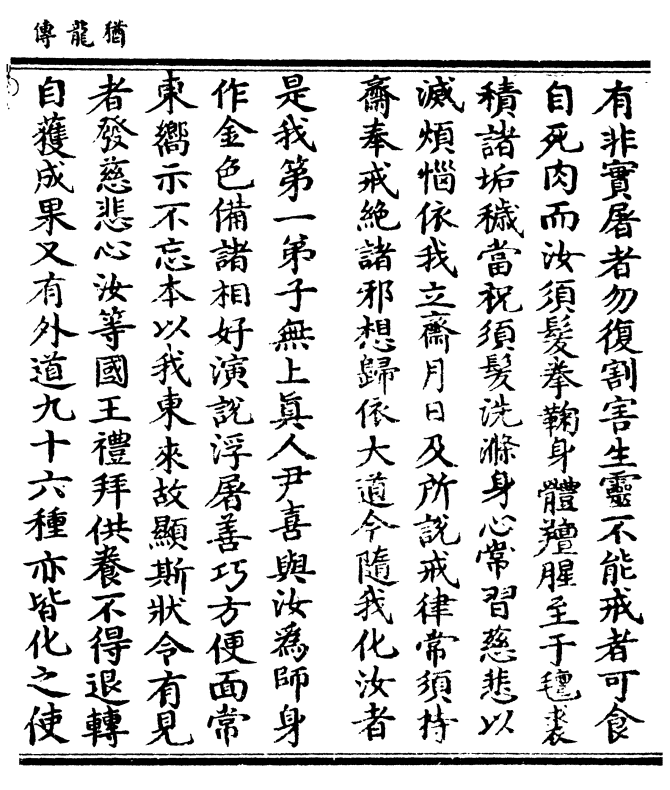 猶龍傳
有非實屠者勿復割害生靈不能戒者可食
自死肉而汝須髮拳鞠身體羶腥至于氊裘
積諸垢穢當祝須髮洗滌身心常習慈悲以
滅煩惱依我立齋月日及所說戒律常須持
齋奉戒絶諸邪想歸依大道今隨我化汝者
是我第一弟子無上眞人尹喜與汝爲師身
作金色備諸相好演說浮屠善巧方便面常
東嚮示不忘本以我東來故顯斯狀令有見
者發慈悲心汝等國王禮拜供養不得退轉
自獲成果又有外道九十六種亦皆化之使